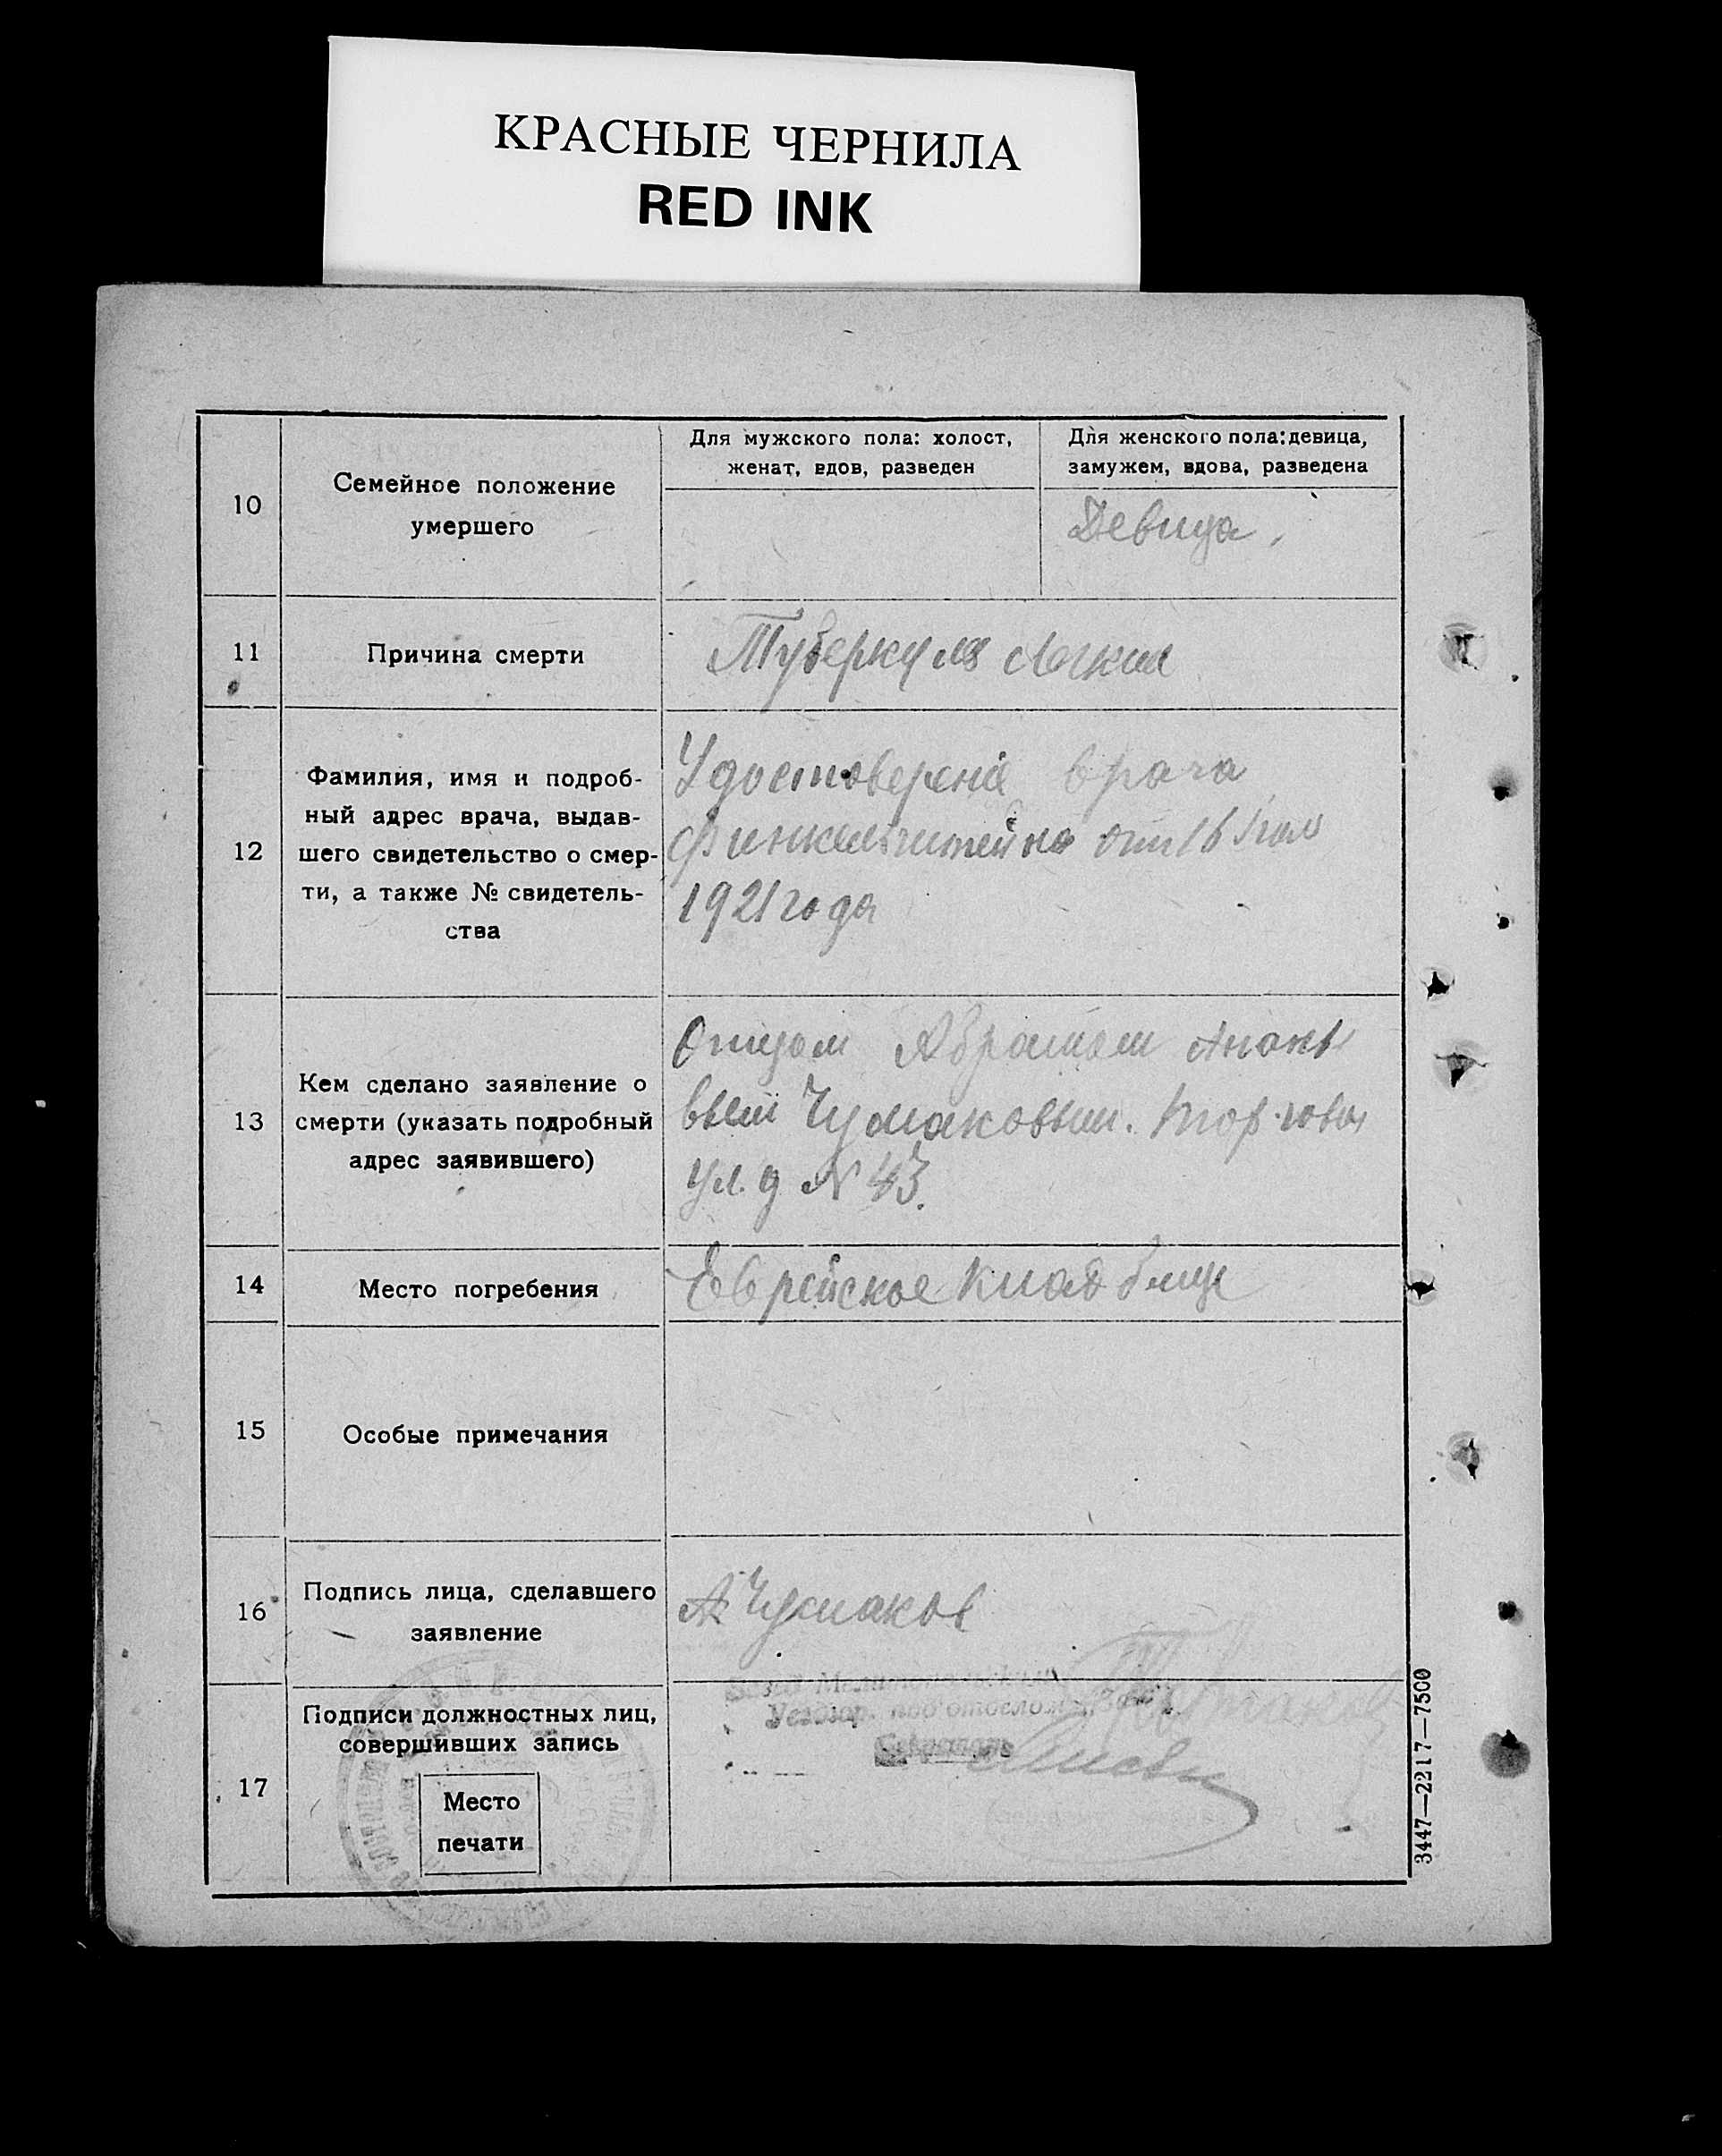 КРАСНЫЕ ЧЕРНИЛА
RED INK
10
Семейное положение
умершего
Для мужского пола: холост,
женат, вдов, разведен
Для женского пола: девица,
замужем, вдова, разведена
Девица.
11
Причина смерти
Туберкулз Легких
12
Фамилия, имя и подроб-
ный адрес врача, выдав-
шего свидетельство о смер-
ти, а также № свидетель-
ства
Удостоверенiе врача
Финкельштейна от 16
1921 года
13
Кем сделано заявление о
смерти (указать подробный
адрес заявившего)
Отцом Абрамом
вым Чумаковым. Торговая
ул. д N 43.
14
Место погребения
Еврейское кладбище
15
Особые примечания
16
Подпись лица, сделавшего
заявление
А Чумаков
17
Подписи должностных лиц,
совершивших запись
Место
печати
3447—2217—7500